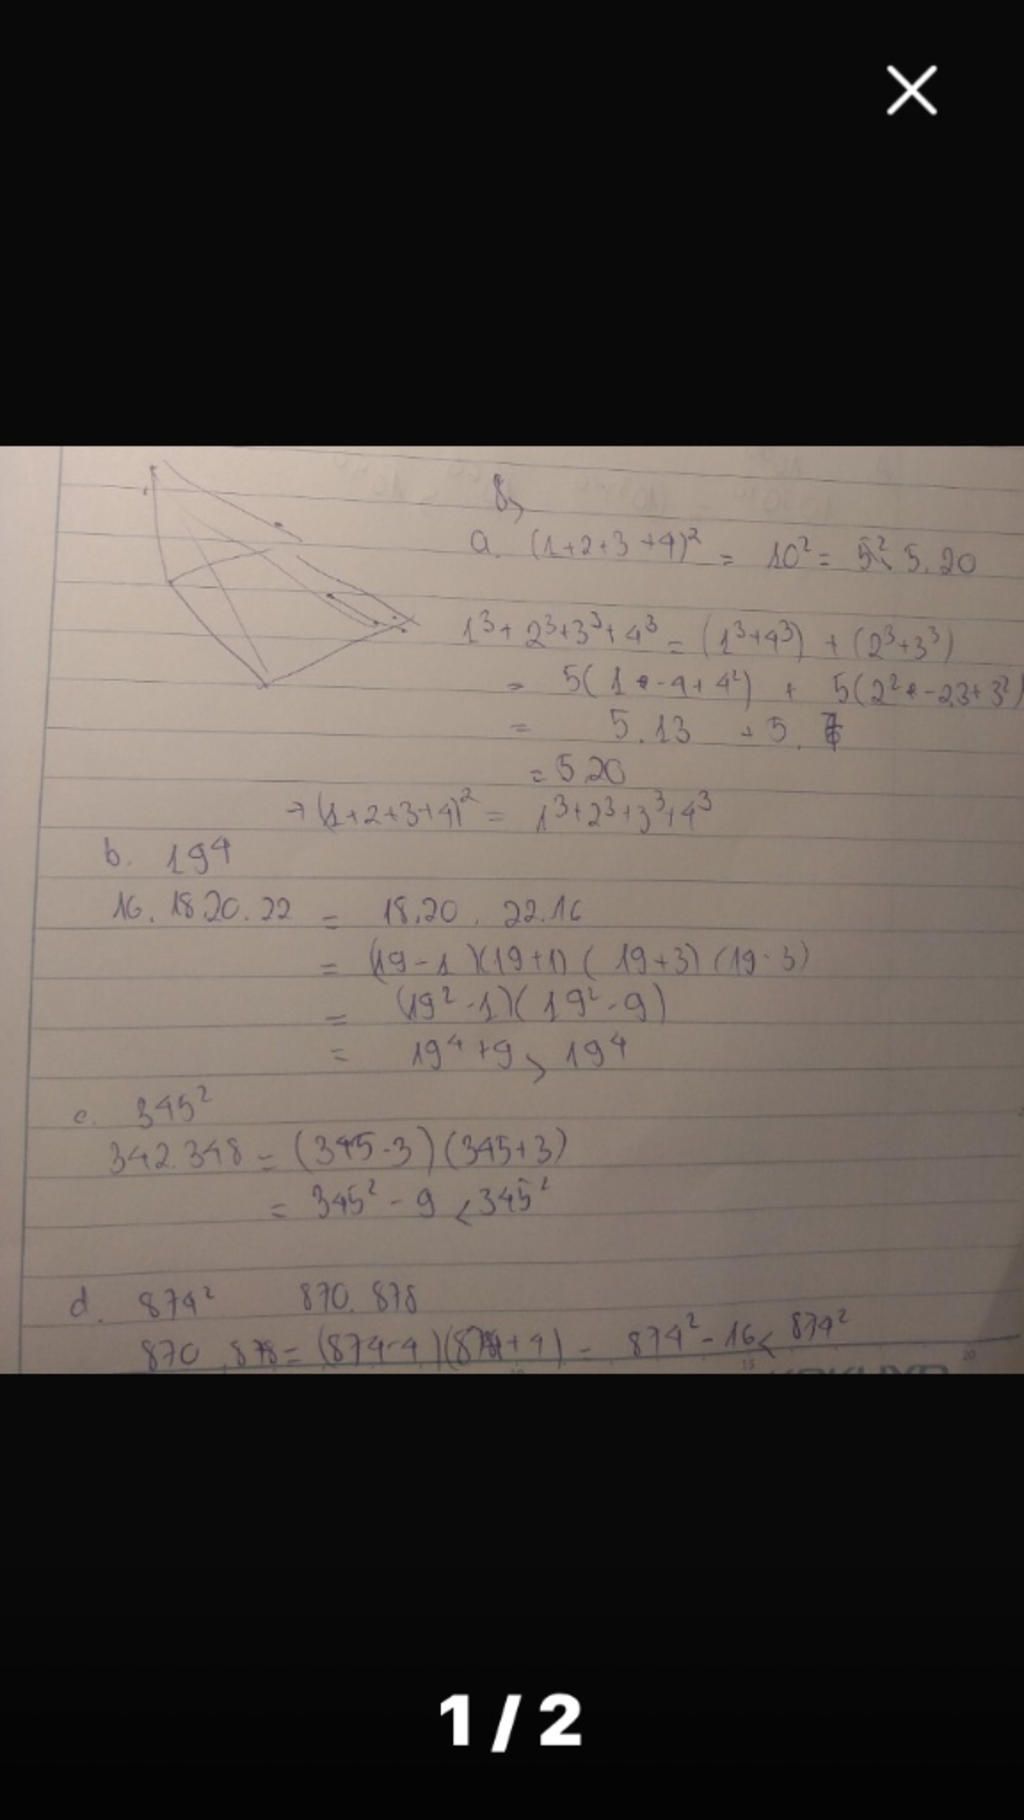 8,
a. (1+2+3+4)² = 10² = 5.20
1³+2³+3³+4³ = (1³+4³) + (2³+3³)
= 5(1-4+4²) + 5(2²-2.3+3²)
= 5.13 + 5.7
= 5.20
→ (1+2+3+4)² = 1³+2³+3³+4³
b. 19⁴
16.18.20.22 = 18.20.22.16
= (19-1)(19+1)(19+3)(19-3)
= (19²-1)(19²-9)
= 19⁴+9 > 19⁴
c. 345²
342.348 = (345-3)(345+3)
= 345² - 9 < 345²
d. 874² 870.878
870.878 = (874-4)(874+4) = 874² - 16 < 874²
15
20
1 / 2